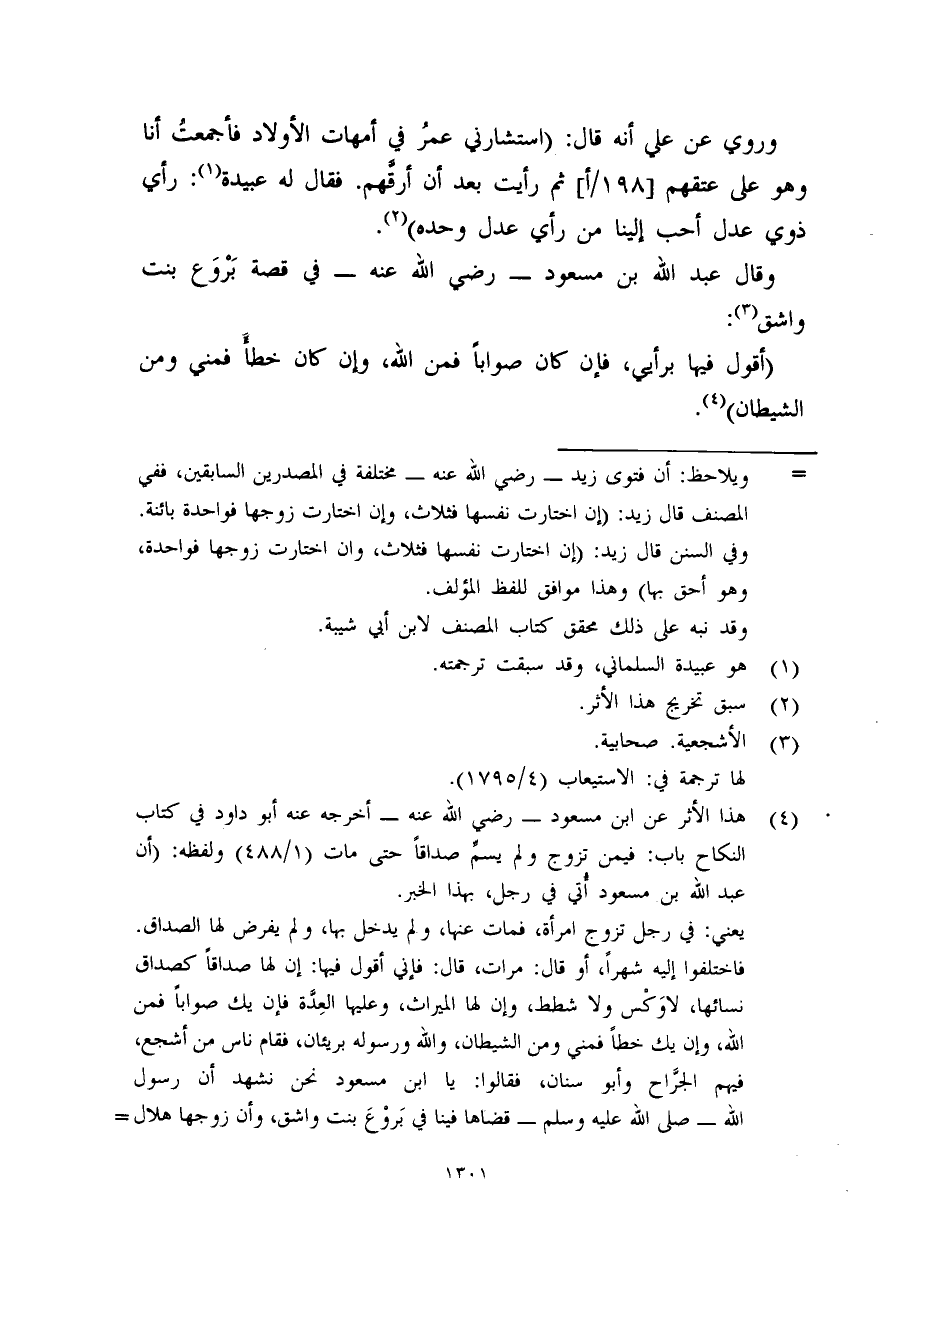 وروي عن علي أنه قال: (استشارني عمرُ في أمهات الأولاد فأجمعتُ أنا
وهو على عتقهم [١٩٨/أ] ثم رأيت بعد أن أرقَّهم. فقال له عبيدة(١): رأي
ذوي عدل أحب إلينا من رأي عدل وحده)(٢).
وقال عبد الله بن مسعود ــ رضي الله عنه ــ في قصة بَرْوَع بنت
واشق(٣):
(أقول فيها برأيي، فإن كان صواباً فمن الله، وإن كان خطأً فمني ومن
الشيطان)(٤).
= ويلاحظ: أن فتوى زيد ــ رضي الله عنه ــ مختلفة في المصدرين السابقين، ففي
المصنف قال زيد: (إن اختارت نفسها فثلاث، وإن اختارت زوجها فواحدة بائنة.
وفي السنن قال زيد: (إن اختارت نفسها فثلاث، وان اختارت زوجها فواحدة،
وهو أحق بها) وهذا موافق للفظ المؤلف.
وقد نبه على ذلك محقق كتاب المصنف لابن أبي شيبة.
(١) هو عبيدة السلماني، وقد سبقت ترجمته.
(٢) سبق تخريج هذا الأثر.
(٣) الأشجعية. صحابية.
لها ترجمة في: الاستيعاب (١٧٩٥/٤).
(٤) هذا الأثر عن ابن مسعود ــ رضي الله عنه ــ أخرجه عنه أبو داود في كتاب
النكاح باب: فيمن تزوج ولم يسمِّ صداقاً حتى مات (٤٨٨/١) ولفظه: (أن
عبد الله بن مسعود أُتي في رجل، بهذا الخبر.
يعني: في رجل تزوج امرأة، فمات عنها، ولم يدخل بها، ولم يفرض لها الصداق.
فاختلفوا إليه شهراً، أو قال: مرات، قال: فإني أقول فيها: إن لها صداقاً كصداق
نسائها، لاوَكْس ولا شطط، وإن لها الميراث، وعليها العِدَّة فإن يك صواباً فمن
الله، وإن يك خطاً فمني ومن الشيطان، والله ورسوله بريئان، فقام ناس من أشجع،
فيهم الجَّراح وأبو سنان، فقالوا: يا ابن مسعود نحن نشهد أن رسول
الله ــ صلى الله عليه وسلم ــ قضاها فينا في بَروْعَ بنت واشق، وأن زوجها هلال =
١٣٠١